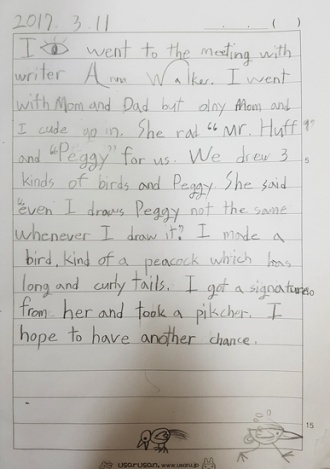 2017. 3. 11 ( )
I went to the meeting with
writer Anna Walker. I went
with Mom and Dad but olny Mom and
I cude go in. She rad "Mr. Huff"
and "Peggy" for us. We drew 3
5
kinds of birds and Peggy. She said
"even I draws Peggy not the same
whenever I draw it." I made a
bird, kind of a peacock which has
long and curly tails. I got a signature
10
from her and took a pikcher. I
hope to have another chance.
15
usarusan. www.usarusan